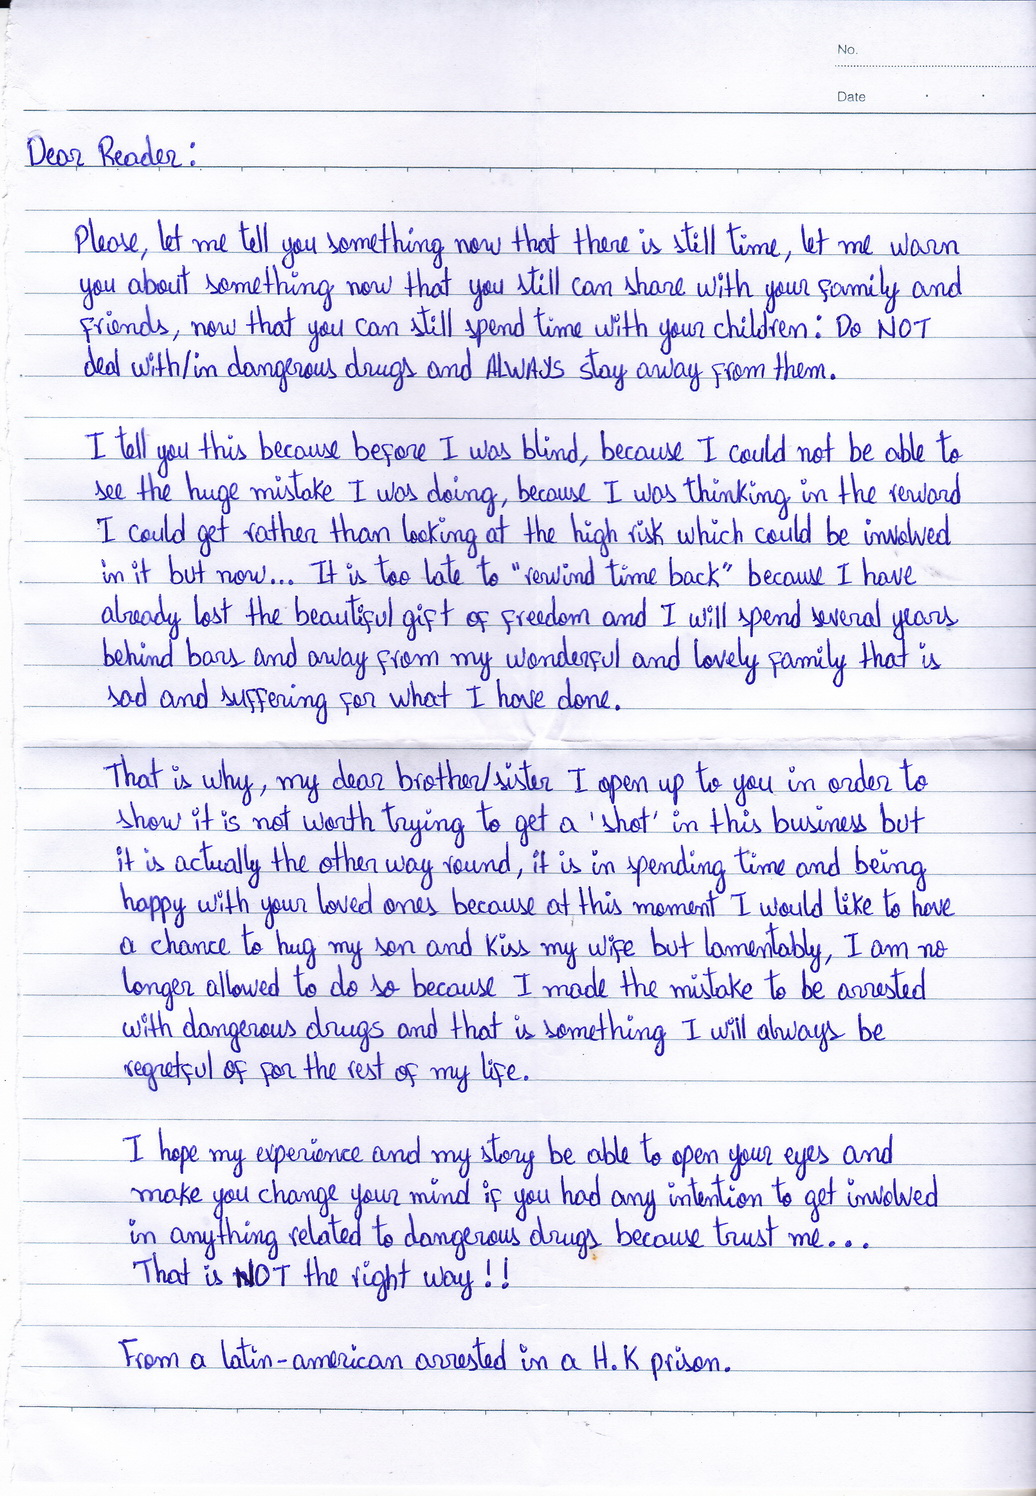 No.
Date
Dear Reader:
Please, let me tell you something now that there is still time, let me warn
you about something now that you still can share with your family and
friends, now that you can still spend time with your children: Do NOT
deal with/in dangerous drugs and ALWAYS stay away from them.
I tell you this because before I was blind, because I could not be able to
see the huge mistake I was doing, because I was thinking in the reward
I could get rather than looking at the high risk which could be involved
in it but now... It is too late to "rewind time back" because I have
already lost the beautiful gift of freedom and I will spend several years
behind bars and away from my wonderful and lovely family that is
sad and suffering for what I have done.
That is why, my dear brother/sister I open up to you in order to
show it is not worth trying to get a 'shot' in this business but
it is actually the other way round, it is in spending time and being
happy with your loved ones because at this moment I would like to have
a chance to hug my son and kiss my wife but lamentably, I am no
longer allowed to do so because I made the mistake to be arrested
with dangerous drugs and that is something I will always be
regretful of for the rest of my life.
I hope my experience and my story be able to open your eyes and
make you change your mind if you had any intention to get involved
in anything related to dangerous drugs because trust me...
That is NOT the right way!!
From a latin-american arrested in a H.K prison.